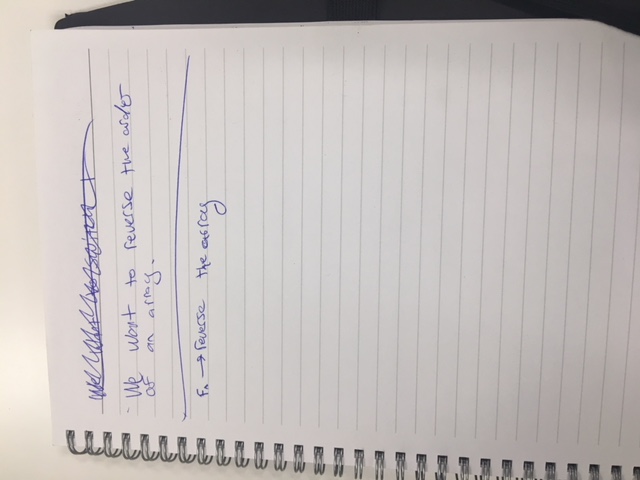 We want to reverse the order
of an array.
Fn → reverse the array